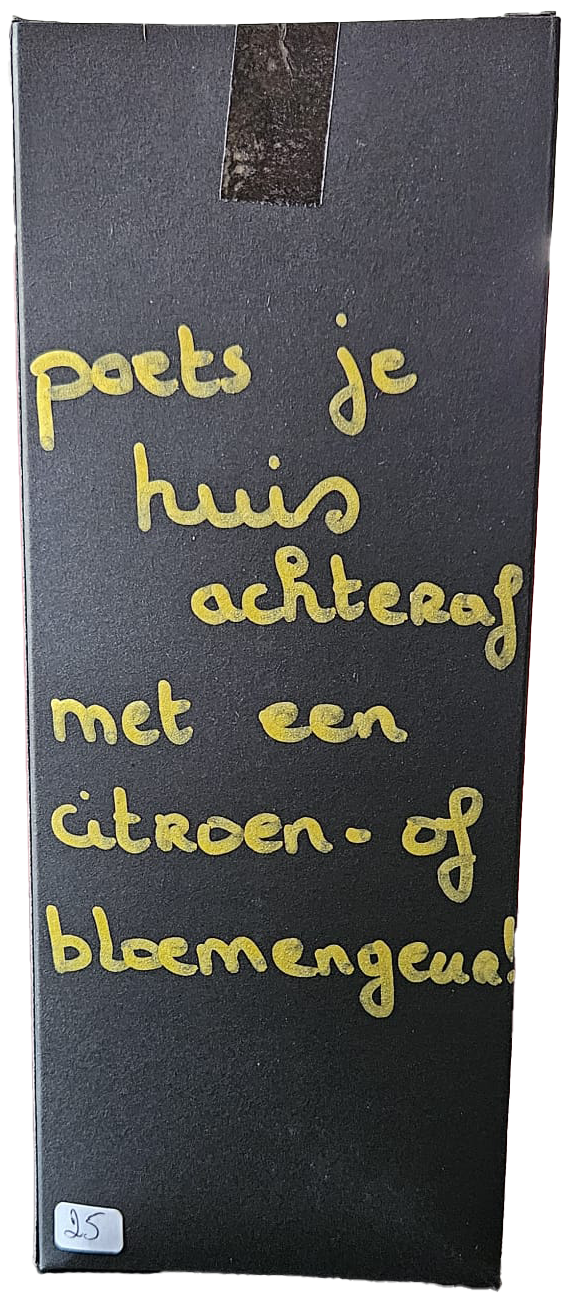 poets je
huis
achteraf
met een
citroen- of
bloemengeur!
25